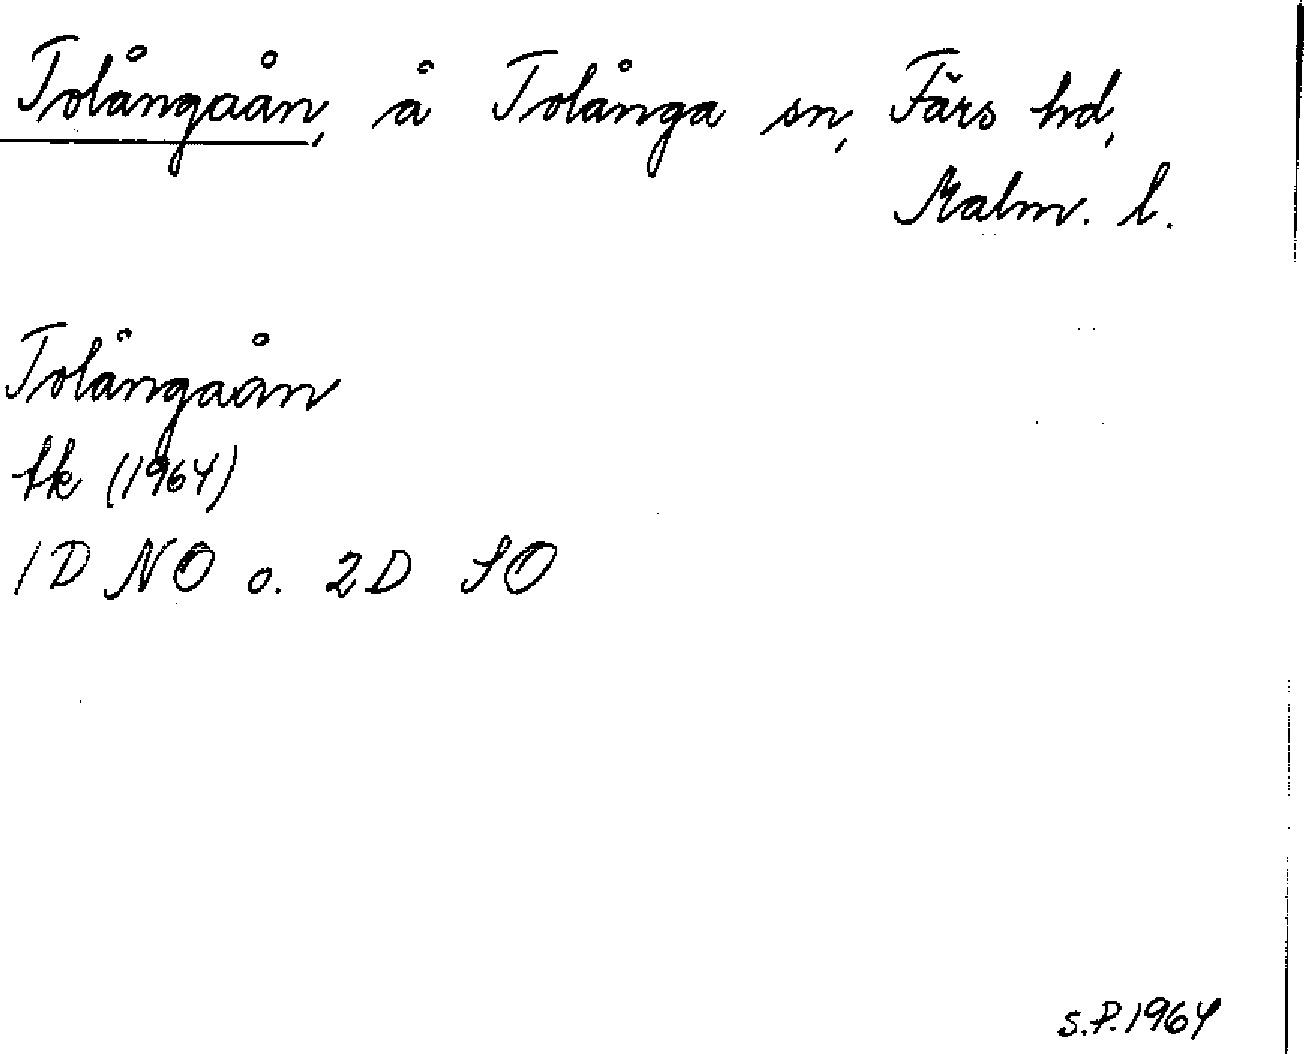 Tolångaån, å Tolånga sn, Färs hd,
Malm. l.
Tolångaån
tk (1964)
1D NO o. 2D SO
S.P. 1964